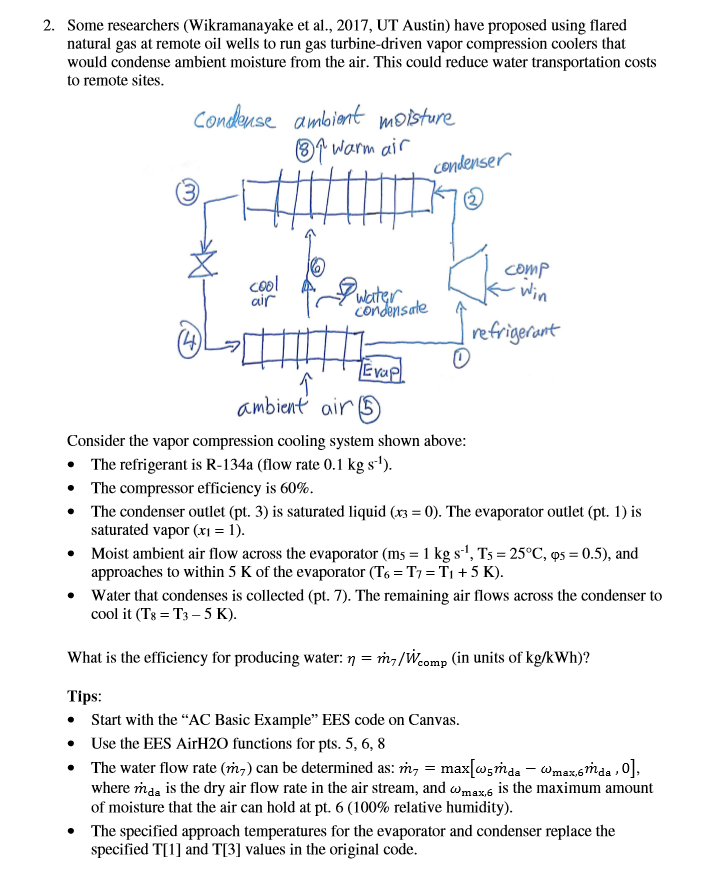 2. Some researchers (Wikramanayake et al., 2017, UT Austin) have proposed using flared
natural gas at remote oil wells to run gas turbine-driven vapor compression coolers that
would condense ambient moisture from the air. This could reduce water transportation costs
to remote sites.
Condense ambient moisture
⑧↑ warm air
condenser
③
②
⑥
cool
air
⑦ water
condensate
comp
← Win
④
refrigerant
Evap
①
ambient air ⑤
Consider the vapor compression cooling system shown above:
• The refrigerant is R-134a (flow rate 0.1 kg s⁻¹).
• The compressor efficiency is 60%.
• The condenser outlet (pt. 3) is saturated liquid (x₃ = 0). The evaporator outlet (pt. 1) is
saturated vapor (x₁ = 1).
• Moist ambient air flow across the evaporator (m₅ = 1 kg s⁻¹, T₅ = 25°C, φ₅ = 0.5), and
approaches to within 5 K of the evaporator (T₆ = T₇ = T₁ + 5 K).
• Water that condenses is collected (pt. 7). The remaining air flows across the condenser to
cool it (T₈ = T₃ – 5 K).
What is the efficiency for producing water: η = ṁ₇/Ẇcomp (in units of kg/kWh)?
Tips:
• Start with the “AC Basic Example” EES code on Canvas.
• Use the EES AirH2O functions for pts. 5, 6, 8
• The water flow rate (ṁ₇) can be determined as: ṁ₇ = max[ω₅ṁda − ωmax,6ṁda , 0],
where ṁda is the dry air flow rate in the air stream, and ωmax,6 is the maximum amount
of moisture that the air can hold at pt. 6 (100% relative humidity).
• The specified approach temperatures for the evaporator and condenser replace the
specified T[1] and T[3] values in the original code.